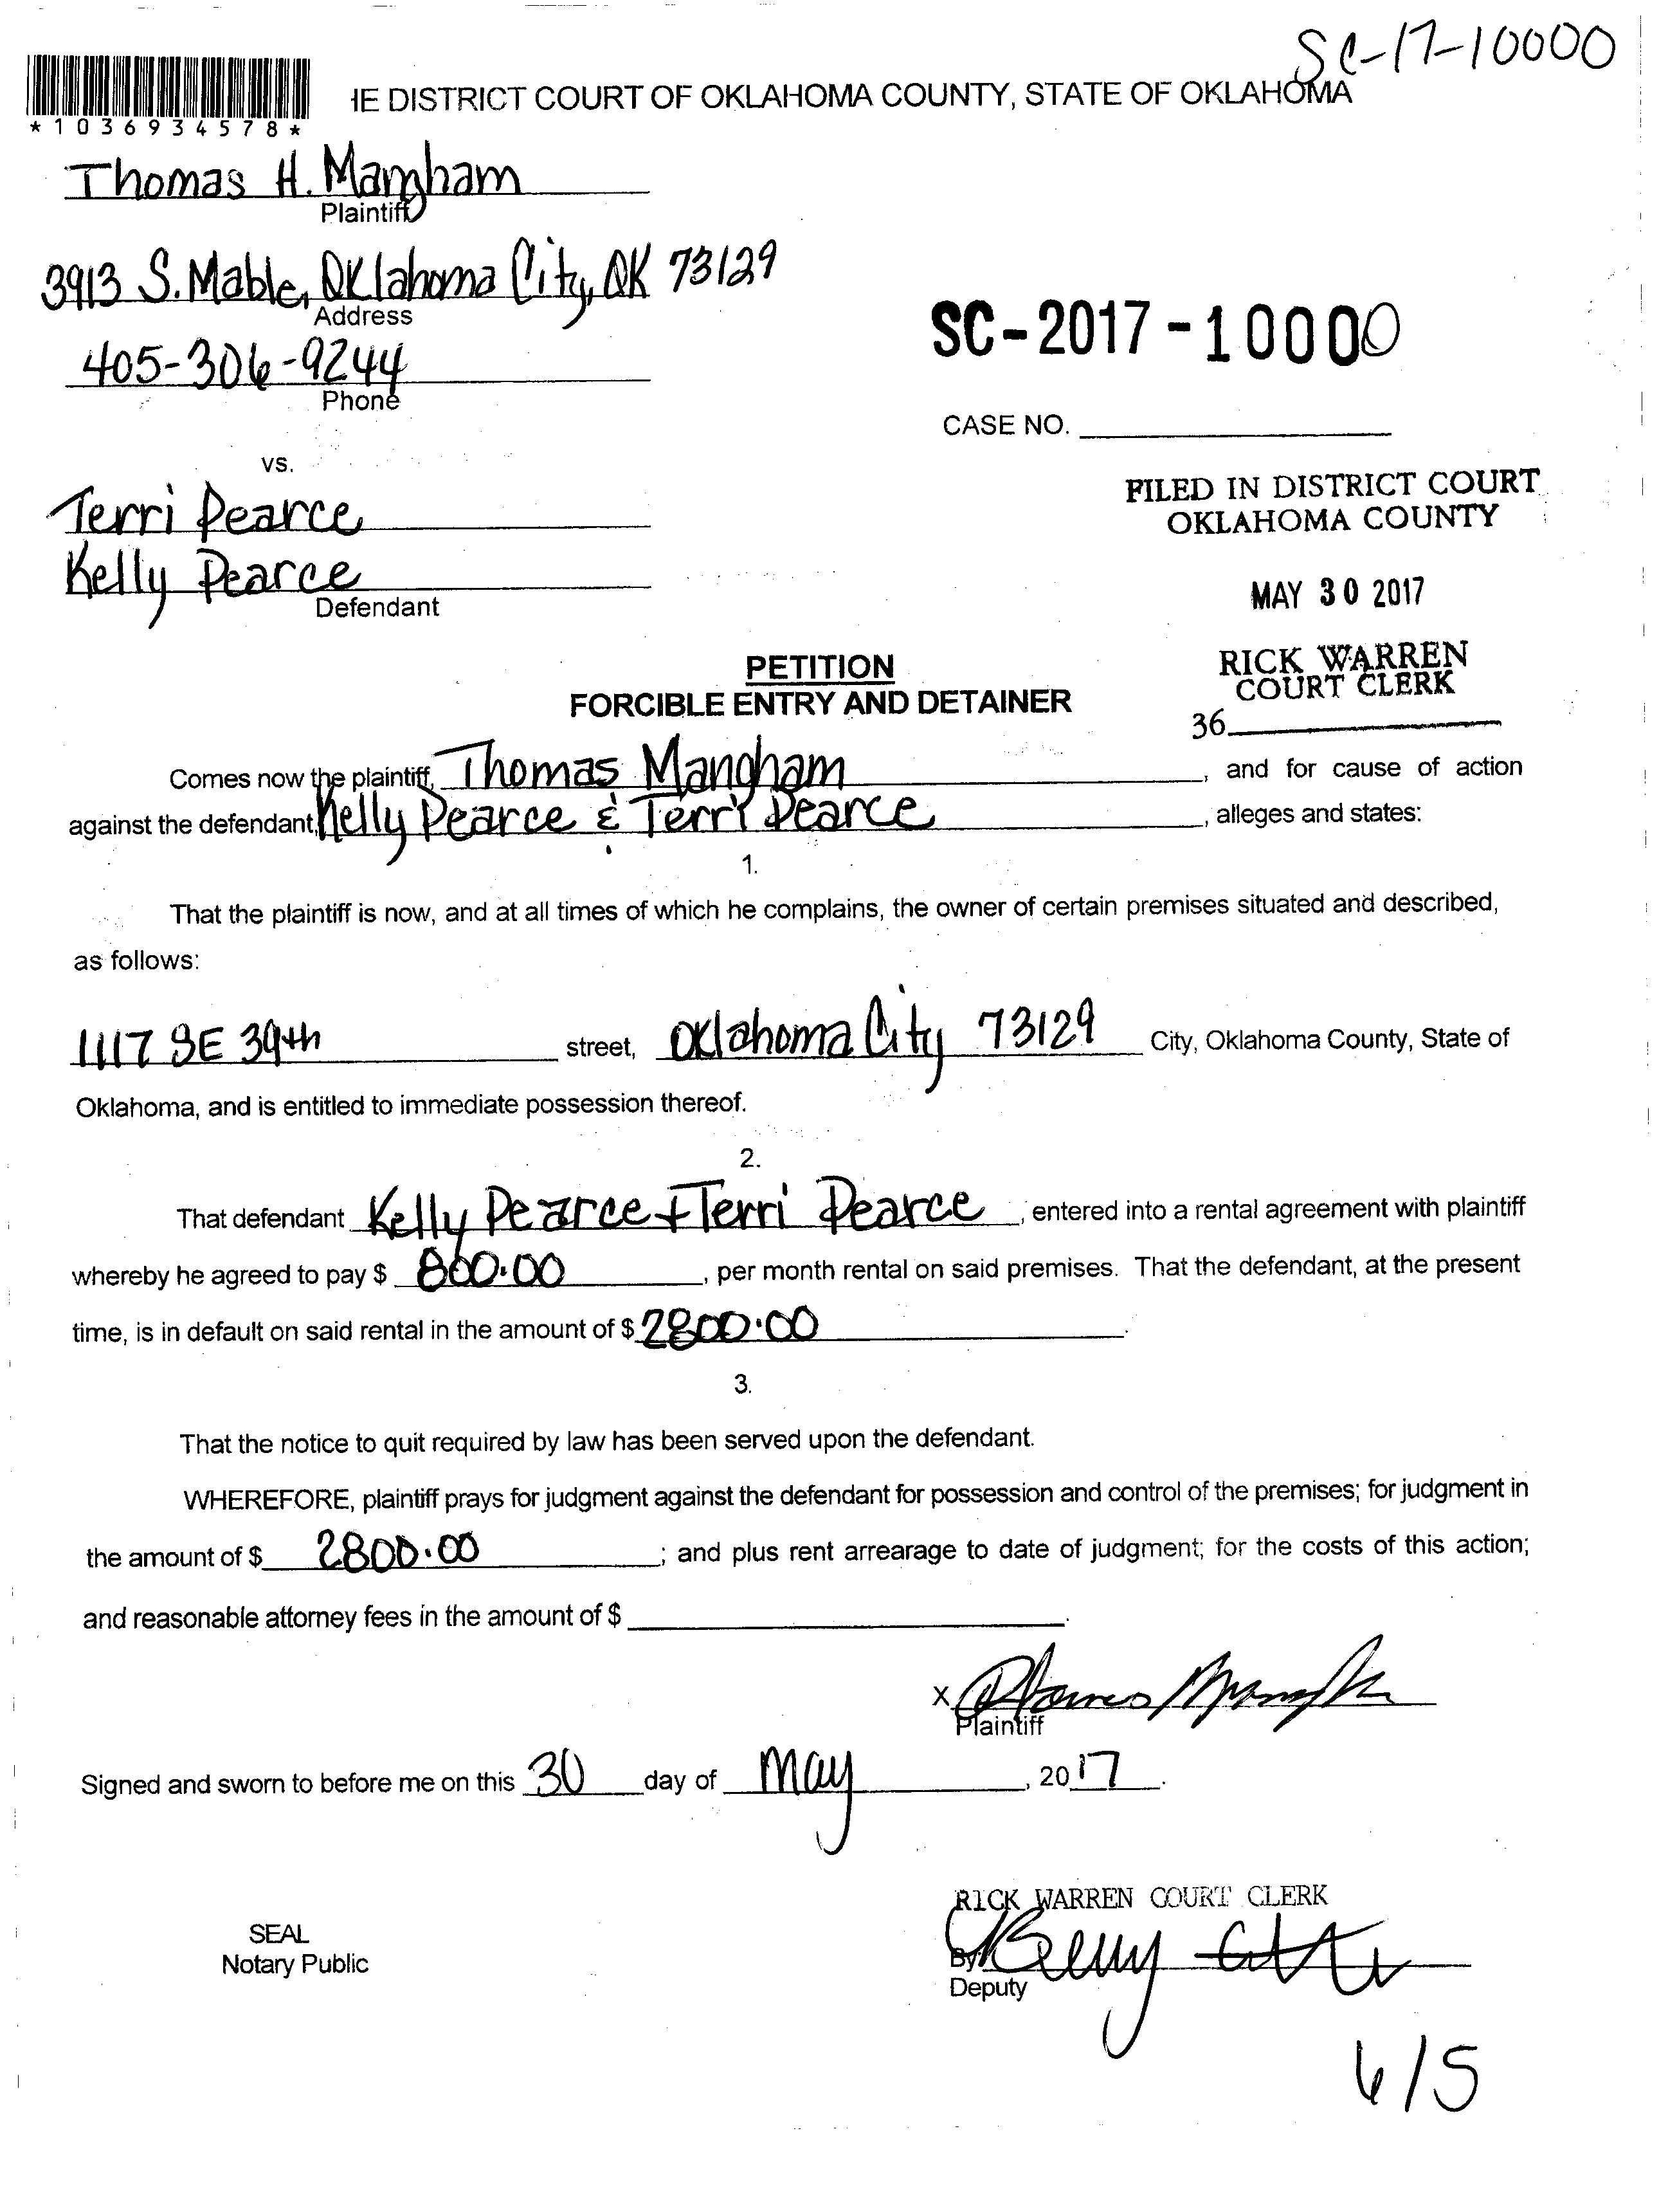 SC-17-10000
IE DISTRICT COURT OF OKLAHOMA COUNTY, STATE OF OKLAHOMA
*1036934578*
Thomas H. Mangham
Plaintiff
3913 S. Mable, Oklahoma City, OK 73129
Address
405-306-9244
Phone
SC-2017-10000
CASE NO.
vs.
Terri Pearce
Kelly Pearce
Defendant
FILED IN DISTRICT COURT
OKLAHOMA COUNTY
MAY 30 2017
RICK WARREN
COURT CLERK
36
PETITION
FORCIBLE ENTRY AND DETAINER
Comes now the plaintiff, Thomas Mangham, and for cause of action
against the defendant, Kelly Pearce & Terri Pearce, alleges and states:
1.
That the plaintiff is now, and at all times of which he complains, the owner of certain premises situated and described,
as follows:
1117 SE 39th street, Oklahoma City 73129 City, Oklahoma County, State of
Oklahoma, and is entitled to immediate possession thereof.
2.
That defendant Kelly Pearce + Terri Pearce, entered into a rental agreement with plaintiff
whereby he agreed to pay $ 800.00, per month rental on said premises. That the defendant, at the present
time, is in default on said rental in the amount of $ 2800.00.
3.
That the notice to quit required by law has been served upon the defendant.
WHEREFORE, plaintiff prays for judgment against the defendant for possession and control of the premises; for judgment in
the amount of $ 2800.00; and plus rent arrearage to date of judgment; for the costs of this action;
and reasonable attorney fees in the amount of $ .
X Thomas Mangham
Plaintiff
Signed and sworn to before me on this 30 day of May, 2017.
RICK WARREN COURT CLERK
SEAL
Notary Public
By
Deputy
6/5